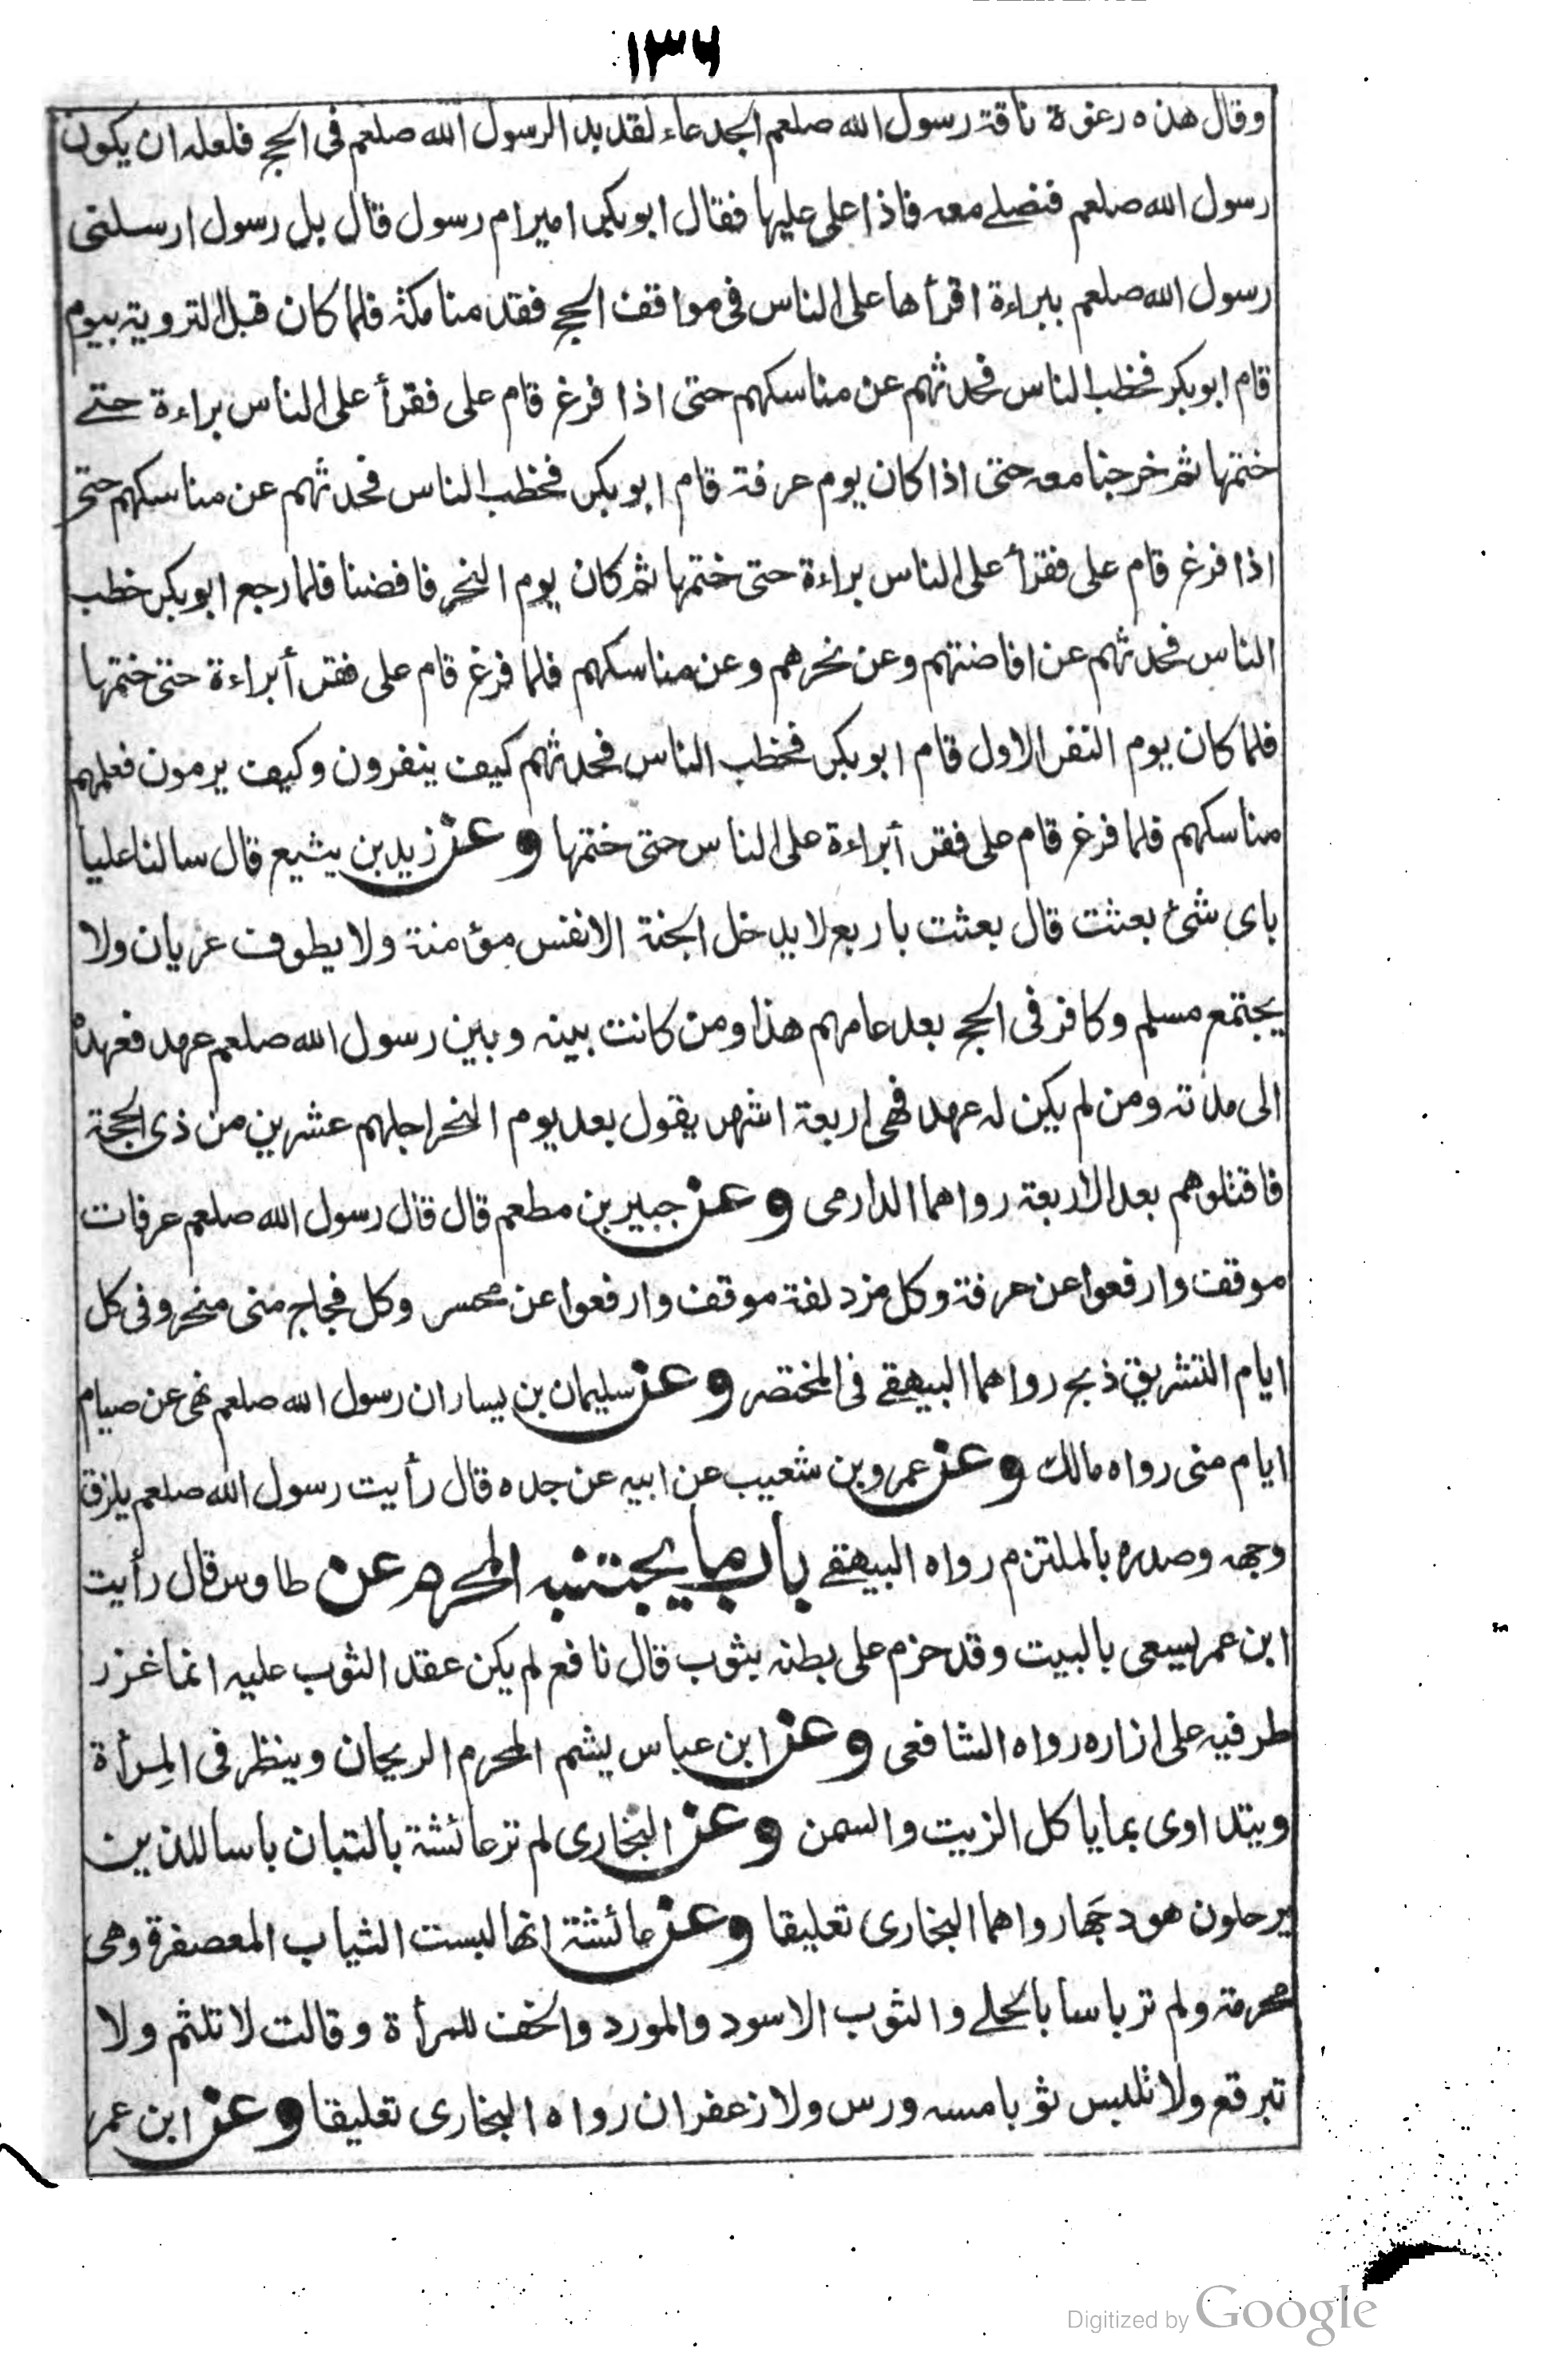 ۱۳۶
وقال هذه رغوة ناقة رسول الله صلعم الجدعاء لقد بدا لرسول الله صلعم فى الحج فلعله ان يكون
رسول الله صلعم فنصلے معه فاذا على عليها فقال ابوبكر امير ام رسول قال بل رسول ارسلنى
رسول الله صلعم ببراءة اقرأها على الناس فى مواقف الحج فقدمنا مكة فلما كان قبل التروية بيوم
قام ابوبكر فخطب الناس فحدثهم عن مناسكهم حتى اذا فرغ قام على فقرأ على الناس براءة حتے
ختمها ثم خرجنا معه حتى اذا كان يوم عرفة قام ابوبكر فخطب الناس فحدثهم عن مناسكهم حتى
اذا فرغ قام على فقرأ على الناس براءة حتى ختمها ثم كان يوم النحر فافضنا فلما رجع ابوبكر خطب
الناس فحدثهم عن افاضتهم وعن نحرهم وعن مناسكهم فلما فرغ قام على فقرأ براءة حتى ختمها
فلما كان يوم النفر الاول قام ابوبكر فخطب الناس فحدثهم كيف ينفرون وكيف يرمون فعلمهم
مناسكهم فلما فرغ قام على فقرأ براءة على الناس حتى ختمها وعن زيد بن يثيع قال سالنا عليا
باى شئ بعثت قال بعثت باربع لا يدخل الجنة الا نفس مؤمنة ولا يطوف عريان ولا
يجتمع مسلم وكافر فى الحج بعد عامهم هذا ومن كانت بينه وبين رسول الله صلعم عهد فعهده
الى مدته ومن لم يكن له عهد فهى اربعة اشهر يقول بعد يوم النحر اجلهم عشرين من ذى الحجة
فاقتلوهم بعد الاربعة رواهما الدارمى وعن جبير بن مطعم قال قال رسول الله صلعم عرفات
موقف وارفعوا عن عرفة وكل مزدلفة موقف وارفعوا عن محسر وكل فجاج منى منحر وفى كل
ايام التشريق ذبح رواهما البيهقے فى المختصر وعن سليمان بن يسار ان رسول الله صلعم نهى عن صيام
ايام منى رواه مالك وعن عمرو بن شعيب عن ابيه عن جده قال رأيت رسول الله صلعم يلزق
وجهه وصدره بالملتزم رواه البيهقے باب ما يجتنبه المحرم عن طاوس قال رأيت
ابن عمر يسعى بالبيت وقد حزم على بطنه بثوب قال نافع لم يكن عقد الثوب عليه انما غزر
طرفيه على ازاره رواه الشافعى وعن ابن عباس يشم المحرم الريحان وينظر فى المرأة
ويتداوى بما ياكل الزيت والسمن وعن البخارى لم تر عائشة بالتبان باسا للذين
يرحلون هودجها رواهما البخارى تعليقا وعن عائشة انها لبست الثياب المعصفرة وهى
محرمة ولم تر باسا بالحلے والثوب الاسود والمورد والخف للمرأة وقالت لا تلثم ولا
تبرقع ولا تلبس ثوبا مسه ورس ولا زعفران رواه البخارى تعليقا وعن ابن عمر
Digitized by Google